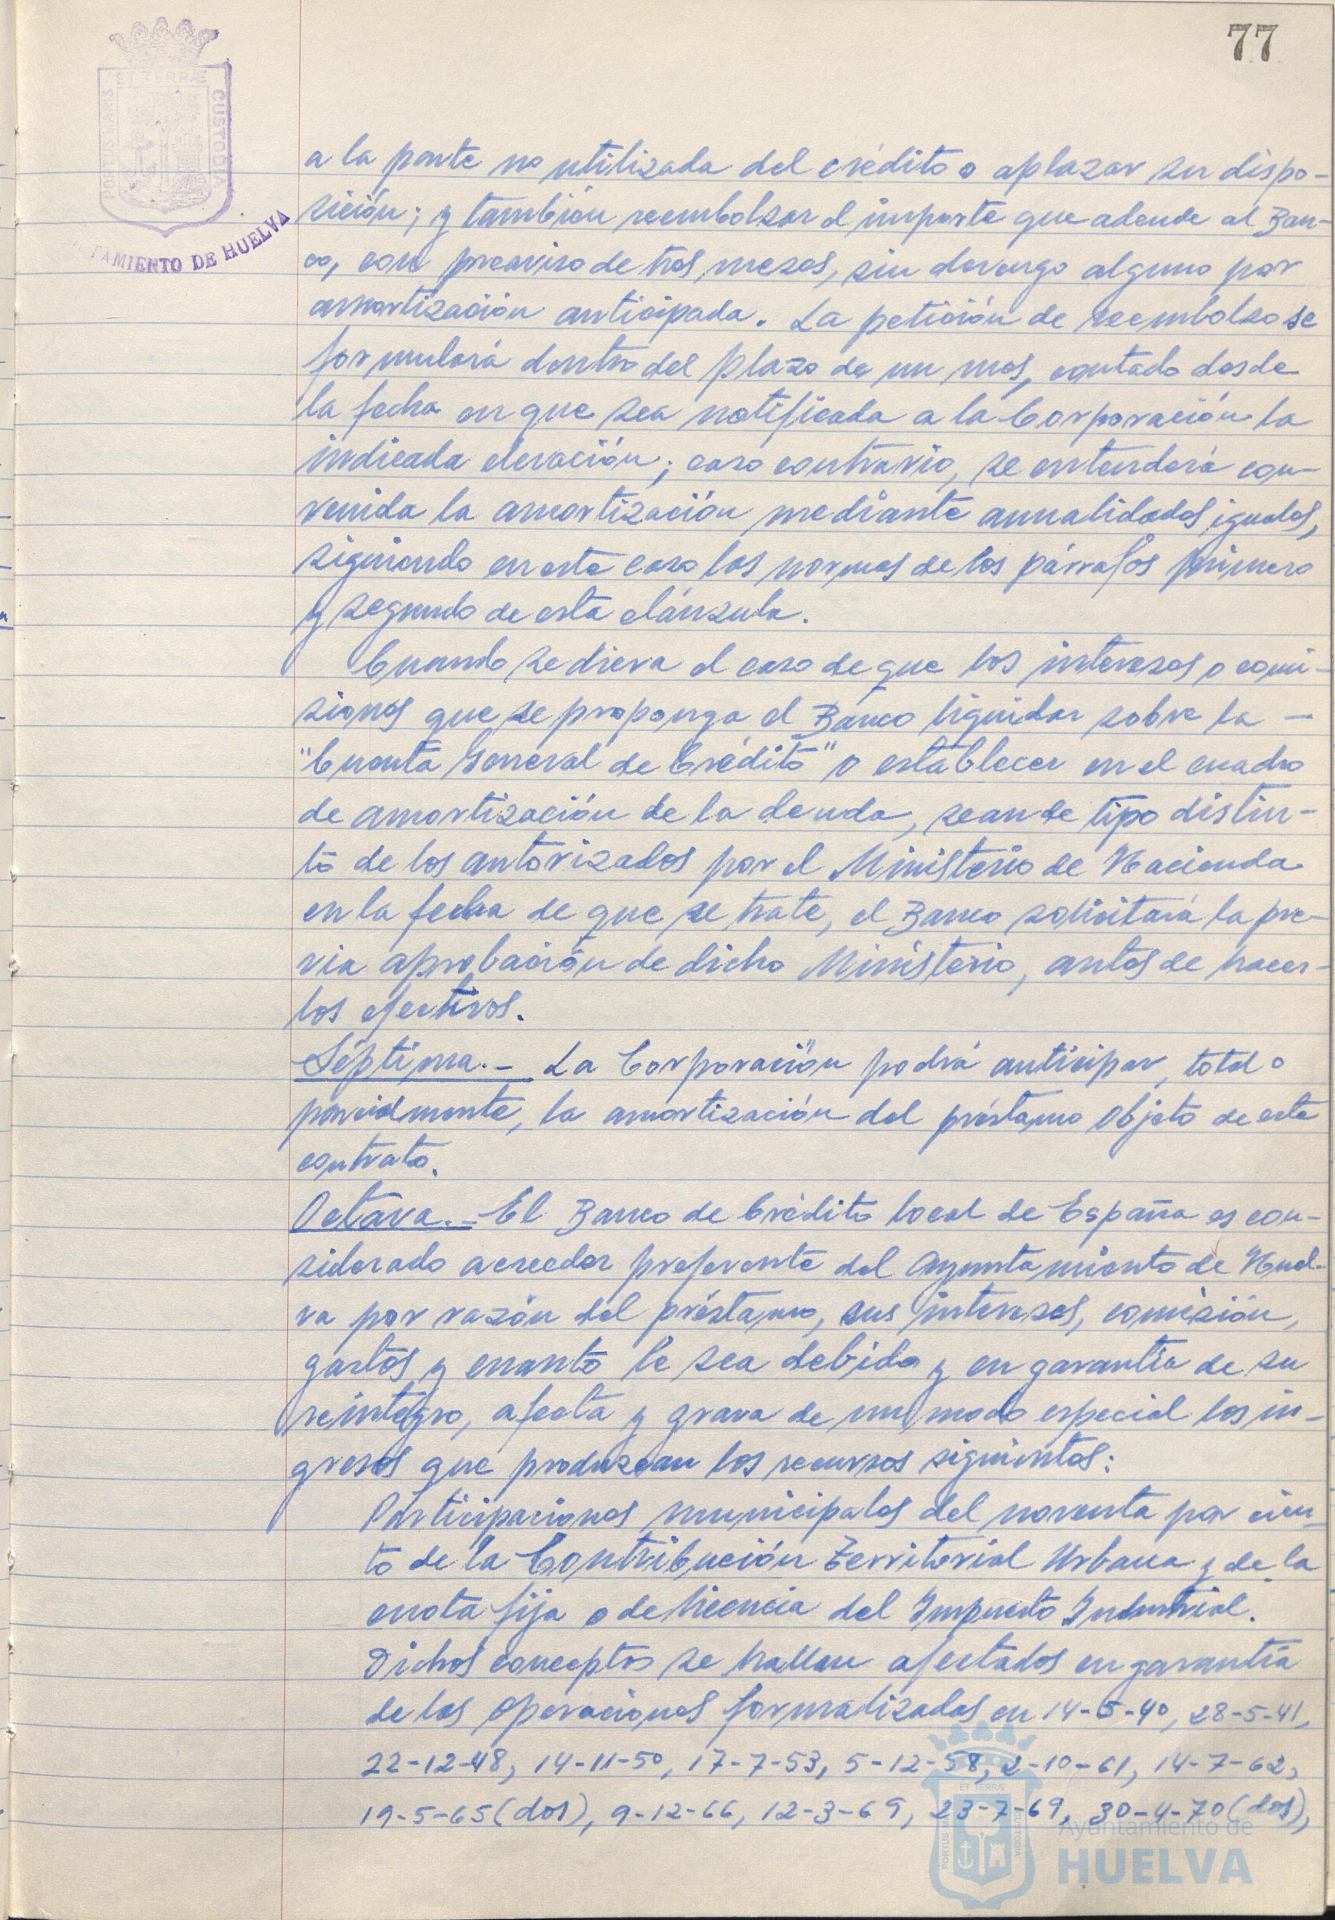 77
PORTUS MARIS
ET TERRÆ
CUSTODIA
TAMIENTO DE HUELVA
a la parte no utilizada del crédito o aplazar su dispo-
sición; y también reembolsar el importe que adeude al Ban-
co, con preaviso de tres meses, sin devengo alguno por
amortización anticipada. La petición de reembolso se
formulará dentro del plazo de un mes, contado desde
la fecha en que sea notificada a la Corporación la
indicada elevación; caso contrario, se entenderá con-
venida la amortización mediante anualidades iguales,
siguiendo en este caso las normas de los párrafos primero
y segundo de esta cláusula.
Cuando se diera el caso de que los intereses o comi-
siones que se proponga el Banco liquidar sobre la -
"Cuenta General de Crédito" o establecer en el cuadro
de amortización de la deuda, sean de tipo distin-
to de los autorizados por el Ministerio de Hacienda
en la fecha de que se trate, el Banco solicitará la pre-
via aprobación de dicho Ministerio, antes de hacer-
los efectivos.
Séptima.- La Corporación podrá anticipar, total o
parcialmente, la amortización del préstamo objeto de este
contrato.
Octava.- El Banco de Crédito Local de España es con-
siderado acreedor preferente del Ayuntamiento de Huel-
va por razón del préstamo, sus intereses, comisión,
gastos y cuanto le sea debido y en garantía de su
reintegro, afecta y grava de un modo especial los in-
gresos que produzcan los recursos siguientes:
Participaciones municipales del noventa por cien-
to de la Contribución Territorial Urbana y de la
cuota fija o de licencia del Impuesto Industrial.
Dichos conceptos se hallan afectados en garantía
de las operaciones formalizadas en 14-5-40, 28-5-41,
22-12-48, 14-11-50, 17-7-53, 5-12-58, 2-10-61, 14-7-62,
19-5-65 (dos), 9-12-66, 12-3-69, 23-7-69, 30-4-70 (dos),
PORTUS MARIS
ET TERRÆ
CUSTODIA
Ayuntamiento de
HUELVA